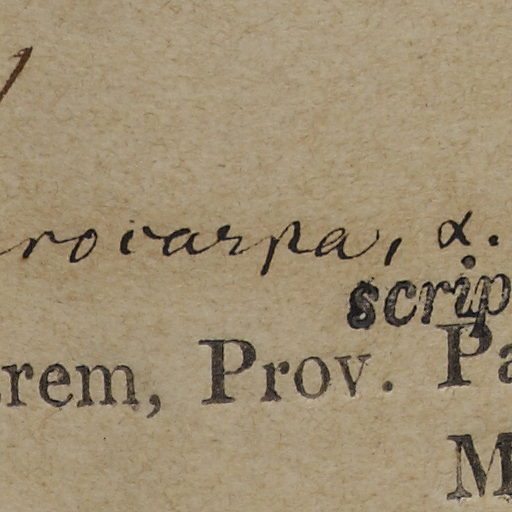 rocarpa, α.
scrip
rem, Prov. Pa
M